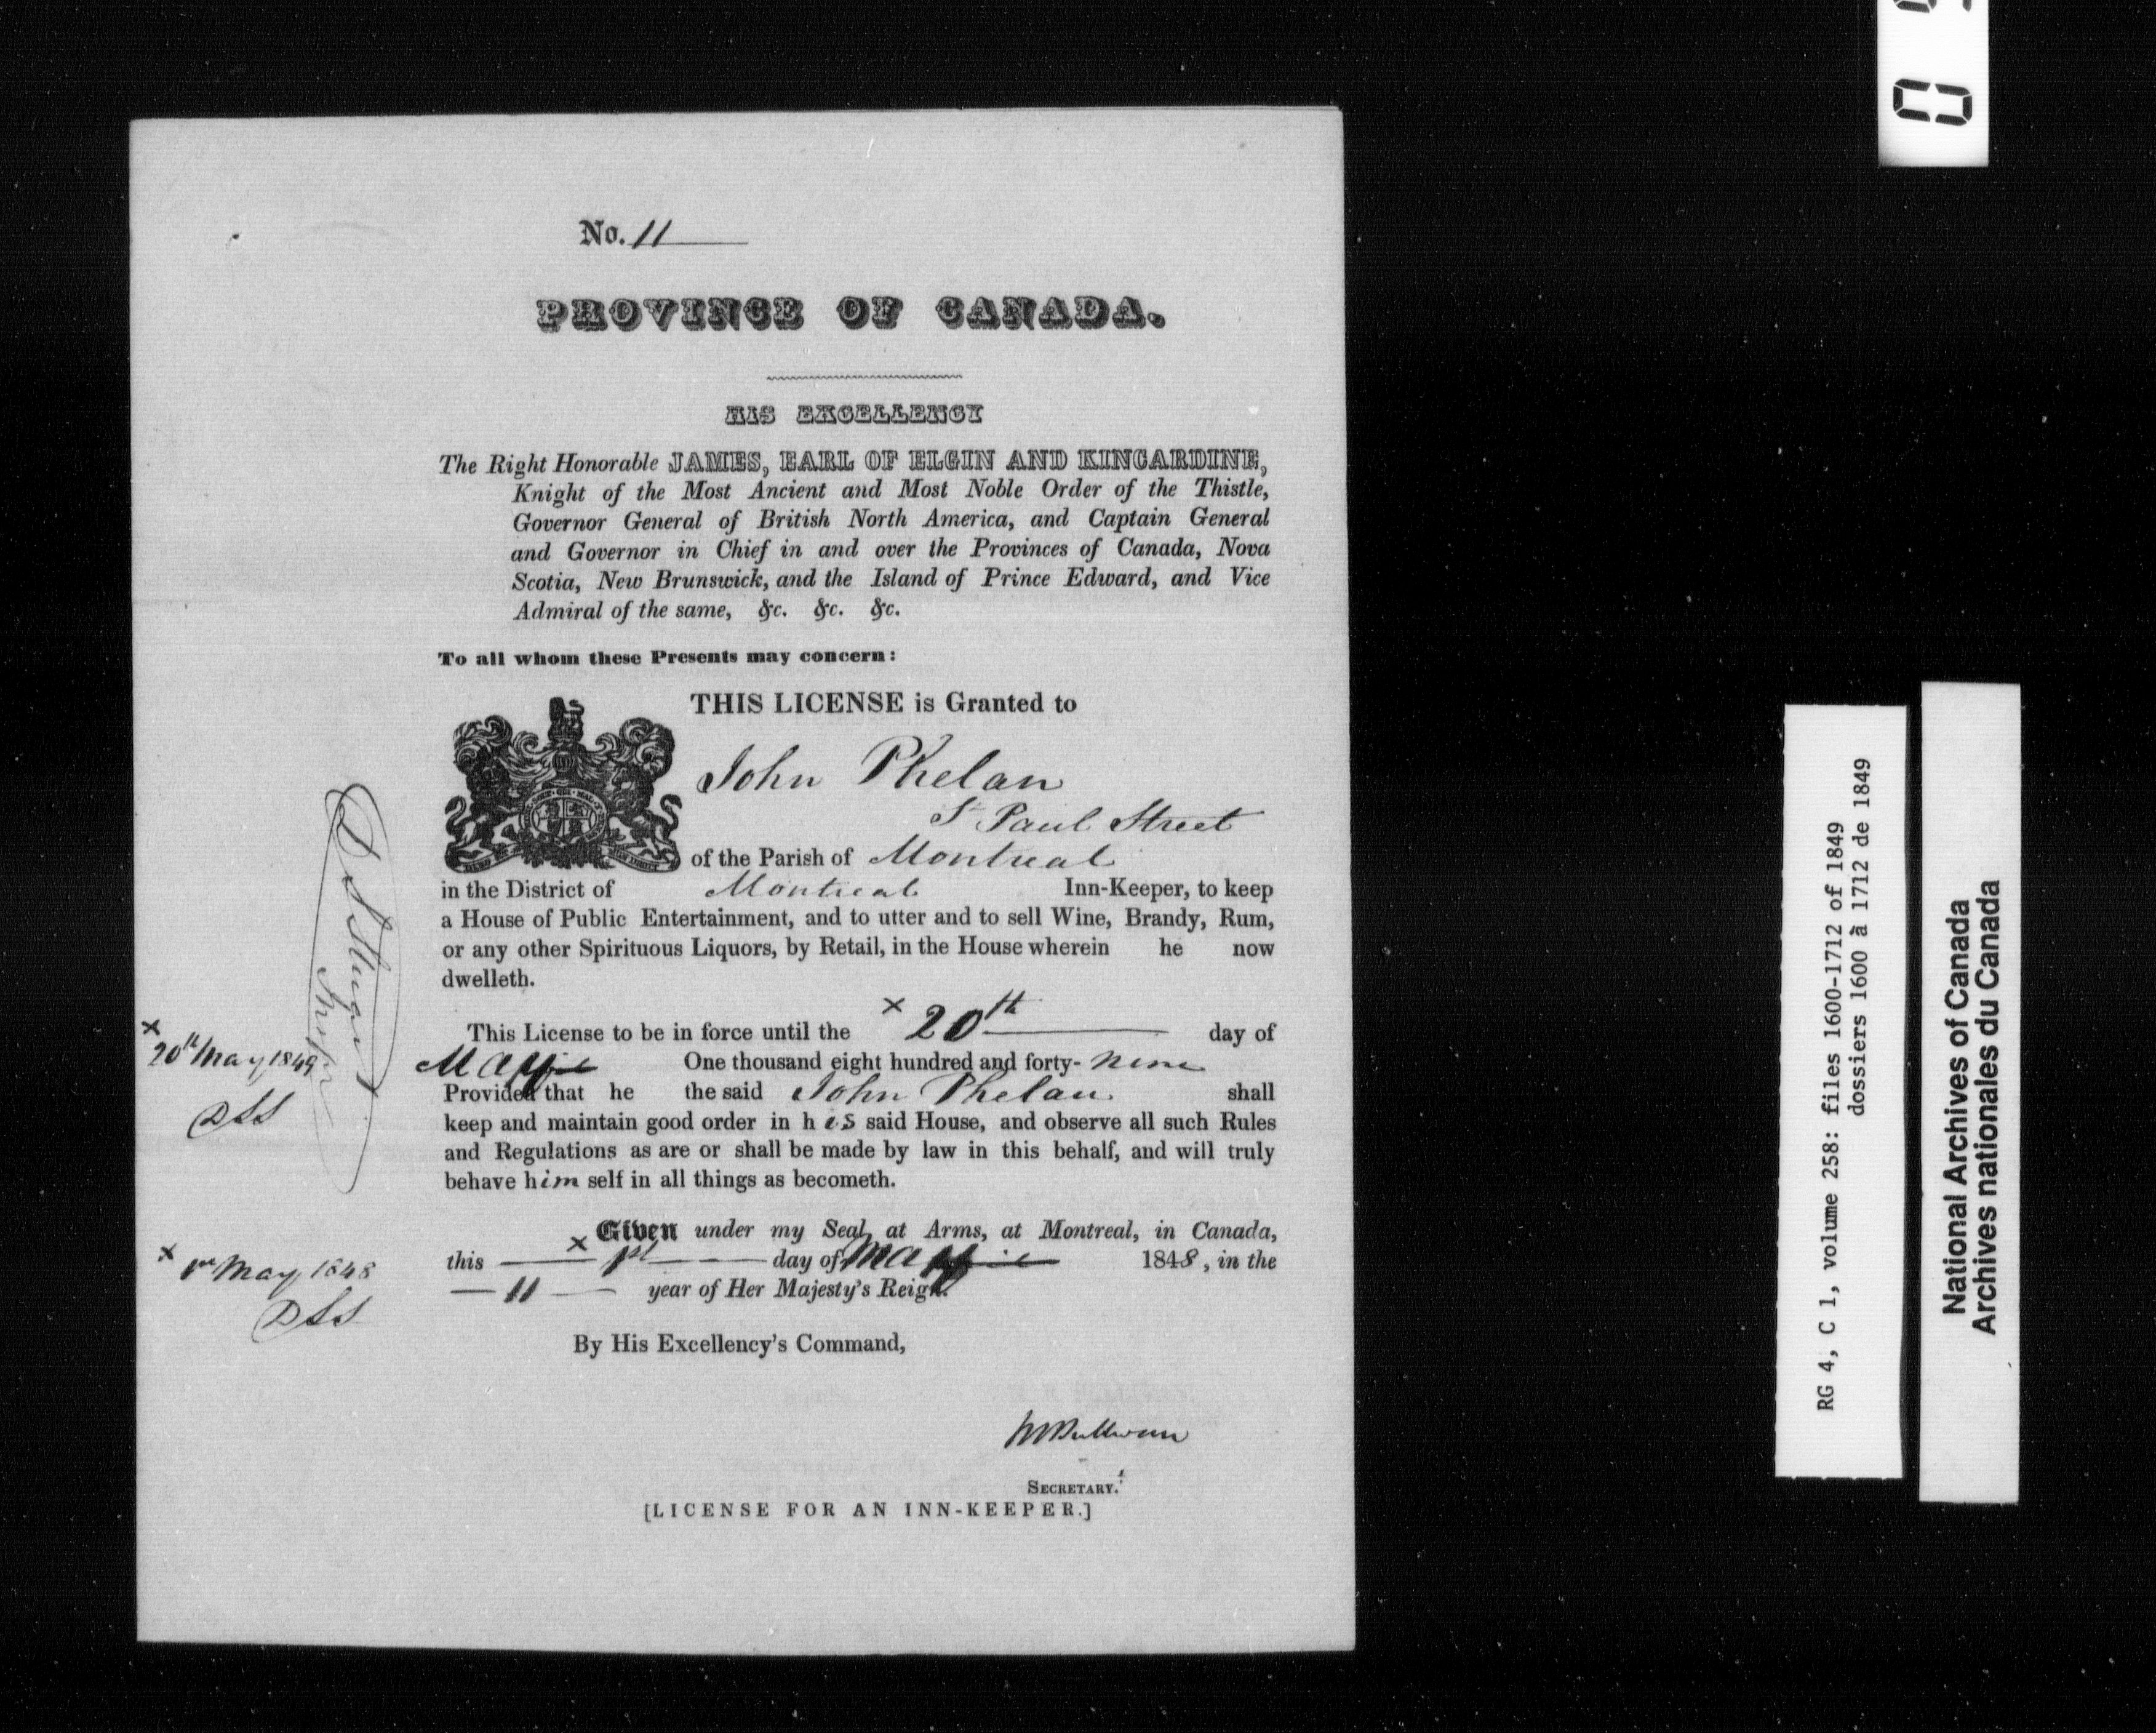 No. 11
PROVINCE OF CANADA.
HIS EXCELLENCY
The Right Honorable JAMES, EARL OF ELGIN AND KINCARDINE,
Knight of the Most Ancient and Most Noble Order of the Thistle,
Governor General of British North America, and Captain General
and Governor in Chief in and over the Provinces of Canada, Nova
Scotia, New Brunswick, and the Island of Prince Edward, and Vice
Admiral of the same, &c. &c. &c.
To all whom these Presents may concern:
THIS LICENSE is Granted to
John Phelan
St Paul Street
of the Parish of Montreal
in the District of Montreal Inn-Keeper, to keep
a House of Public Entertainment, and to utter and to sell Wine, Brandy, Rum,
or any other Spirituous Liquors, by Retail, in the House wherein he now
dwelleth.
This License to be in force until the x 20th day of
May One thousand eight hundred and forty-nine
Provided that he the said John Phelan shall
keep and maintain good order in his said House, and observe all such Rules
and Regulations as are or shall be made by law in this behalf, and will truly
behave himself in all things as becometh.
Given under my Seal at Arms, at Montreal, in Canada,
this x 1st day of May 1848, in the
11 year of Her Majesty's Reign.
By His Excellency's Command,
SECRETARY.
[LICENSE FOR AN INN-KEEPER.]
x
20th May, 1849
DSS
x 1st May, 1848
DSS
RG 4, C 1, volume 258: files 1600-1712 of 1849
dossiers 1600 à 1712 de 1849
National Archives of Canada
Archives nationales du Canada